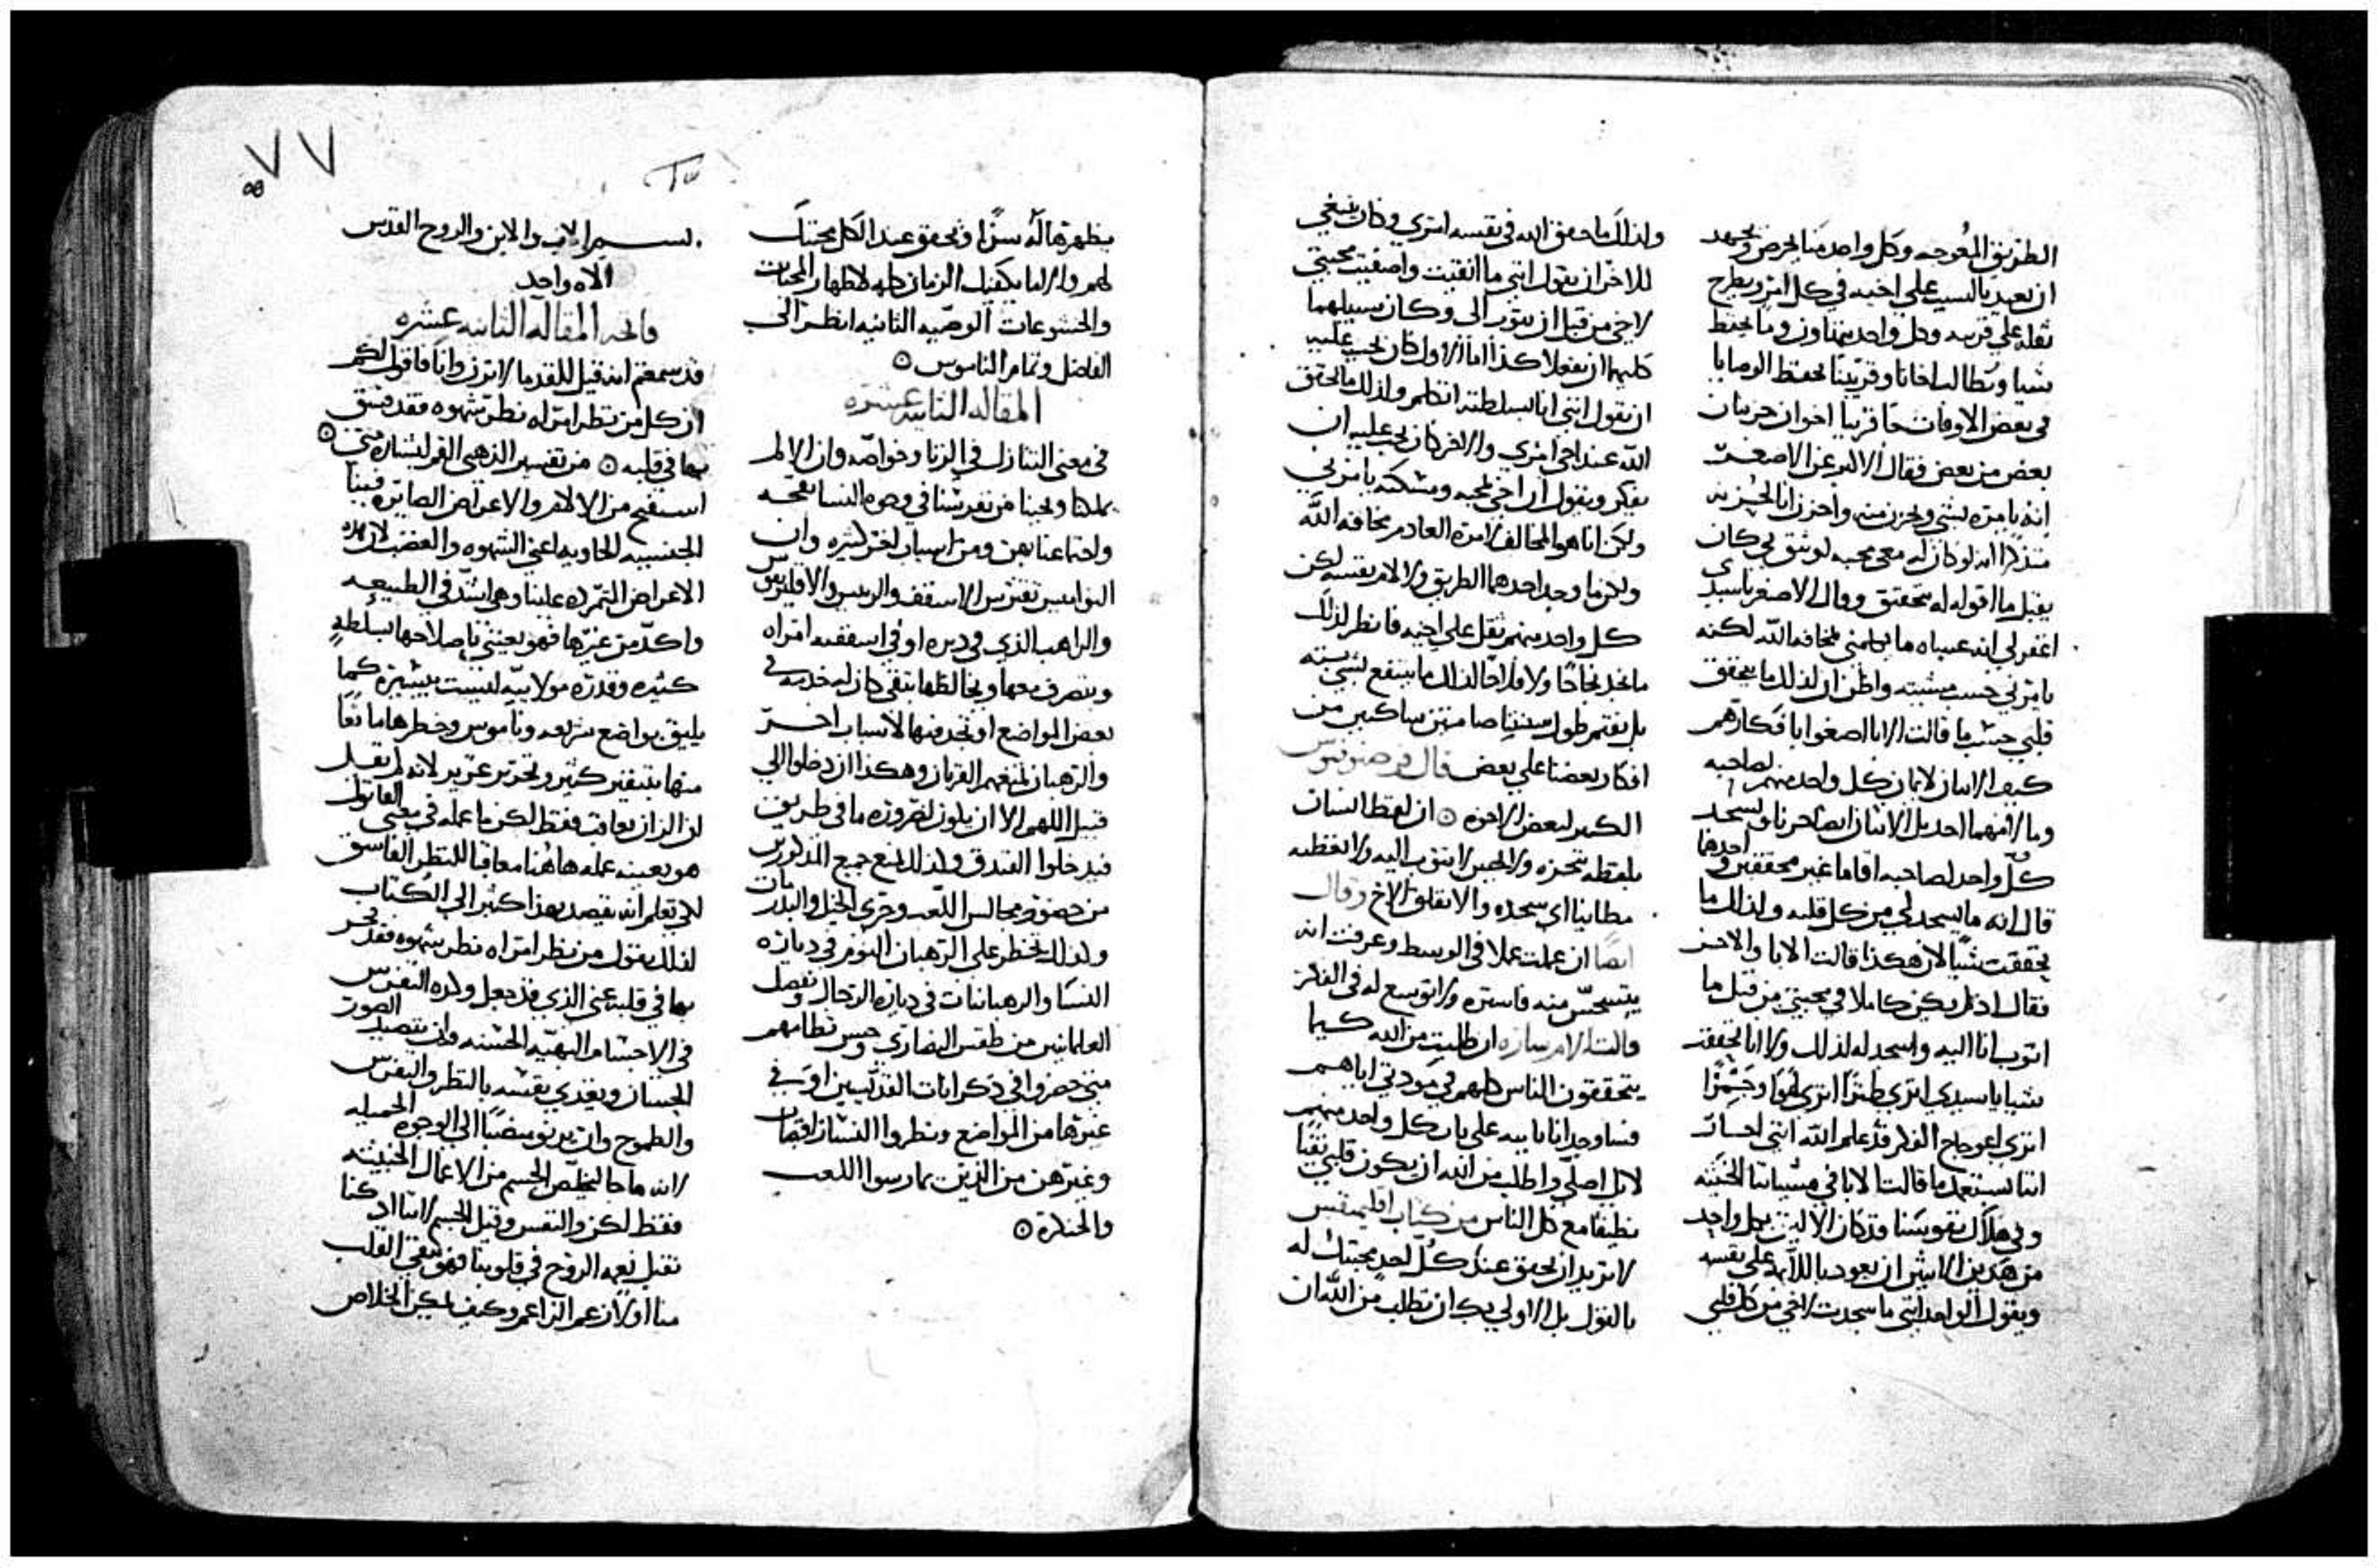 الطريق المعوجه وكل واحد منا يحرص ويجهد
ان يعيد بالسبب علي اخيه في كل امر ويطرح
ثقله علي قريبه وكل واحد يتهاون وما يحفظ
شيا ويطالب اخانا وقريبنا بحفظ الوصايا
في بعض الاوقات جا قريبا اخوان حزينان
بعض من بعض فقال الاكبر عن الاصغر
انه يامره بشي ويحزن منه واحزن انا لحزنه
متذكرا انه لو كان له معي محبه لوثق بي كان
يقبل ما اقوله له بتحقق وقال الاصغر يا سيدي
اغفر لي انه عساه ما يكلمني بمخافة الله لكنه
يامرني حسب مشيته واظن ان لذلك ما يتحقق
قلبي حسب ما قالت الابا اصغوا يا
كيف الانسان لايمان كل واحد منهم لصاحبه
وما منهما احد بل الاثنان ويسجد
كل واحد لصاحبه اقاما غير محققين احدهما
قال انه ما يسجد لي من كل قلبه ولذلك ما
تحققت شيا لان هكذا قالت الابا والاخر
فقال اذ لم يكن كاملا في محبتي من قبل ما
اتوب انا اليه واسجد له لذلك ولا انا تحققت
شيا يا سيدي اتري اتري
اتري اعوجاج الفكر قد علم الله انني
اننا نستعمل ما قالت الابا في مشياتنا الخبيثه
وفي هلاك نفوسنا قد كان الاليق بكل واحد
من هذين الاثنين ان يعود باللايمه علي نفسه
ويقول الواحد انني ما سجدت لاخي من كل قلبي
ولذلك ما حقق الله في نفسه اتري وكان ينبغي
للاخر ان يقول انني ما اتقنت واصفيت محبتي
لاخي من قبل ان يتوب الي وكان سبيلهما
كليهما ان يفعلا كذا اما الاول كان يجب عليه
ان يقول انني انا بسلطنه اتكلم ولذلك ما يحقق
الله عند اخي امري والاخر كان يجب عليه ان
يفكر ويقول ان اخي بمحبه ومسكنه يامرني
ولكن انا هو المخالف لامره العادم مخافة الله
ولكن ما وجد احدهما الطريق ولا لام نفسه لكن
كل واحد منهم ثقل علي اخيه فانظر لذلك
ما نجد نجاحا ولا فلاحا لذلك ما ينتفع لشي بته
بل نقيم طول سنينا صامتين ساكتين من
افكار بعضنا علي بعض قال
الكبير لبعض الاخوه ۞ ان لفظ انسان
بلفظه تحزنه ولا تجبر لا تتقرب اليه ولا تعطيه
مطانيا اي سجده والا تقلق الاخ وقال
ايضا ان عملت عملا في الوسط وعرفت انه
يتسجس منه فاستره ولا توسع له في الفكر
قالت الام ساره ان طلبت من الله كيما
يتحققون الناس كلهم في مودتي اياهم
فساوجد انا بابيه علي باب كل واحد منهم
لا بل اصلي واطلب من الله ان يكون قلبي نقيا
نظيفا مع كل الناس من كتاب اقليمقس
لا تريد ان تحقق عند كل احد محبتك له
بالقول بل الاولي بك ان تطلب من الله ان
يظهرها له سرا وتحقق عند الكل محبتك
لهم والا ما يكفيك الزمان كله لاظهار المحبات
والخشوعات الوصيه الثانيه انظر الي
الفاضل وتمام الناموس ۞
المقاله الثانيه عشره
في معني التنازل في الزنا وخواصه وان الالم
يملكنا ويجينا من تفرسنا في وجوه النسا بقحه
واجتماعنا بهن ومن اسباب اخر كثيره وان
النواميس تفترس الاسقف والريس والاقليريقس
والراهب الذي في ديره او في اسقفيه امراه
ويتصرف معها ويخالطها بتقي كان له خدمه في
بعض المواضع او تجد منها لاسباب اخر
والرهبان لمنعهم القربان وهكذا ان دخلوا الي
قبيل اللهم الا ان يكون لضروره ما في طريق
فيدخلوا الفندق وكذلك لمنع جميع المذكورين
من حضور مجالس اللعب وجري الخيل والبدرات
ولذلك يحظر علي الرهبان النوم في ديارة
النسا والرهبانات في ديارة الرجال ونفصل
العلمانيين من طقس النصاري وحسن نظامهم
متي حضروا في ذكرانات القديسين او في
غيرها من المواضع ونظروا النسا الراقصات
وغيرهن من الذين يمارسوا اللعب
والخنكره ۞
٧٧
بسم الاب والابن والروح القدس
الاه واحد
فاتحة المقاله الثانيه عشره
قد سمعتم انه قيل للقدما لا تزن وانا فاقول لكم
ان كل من نظر امراه نظر شهوه فقد فسق
بها في قلبه ۞ من تفسير الذهبي الفم لبشارة متي ۞
استفتح من الالام والاعراض الصايره فينا
الجنسيه الحاويه اعني الشهوه والغضب لان هذه
الاعراض المتمرده علينا وهي اشد في الطبيعه
واكد من غيرها فهو يعتني باصلاحها بسلطه
كثيره وقدره مولاييه ليست بيسيره كما
يليق بواضع شريعه وناموس وحظرها مانعا
منها بتيقين كثير وتحرير عزيز لانه لم يقل
ان الزان يعاقب فقط لكن ما عمله في معني القاتول
هو بعينه عمله هاهنا معاقبا للنظر الفاسق
لكي تعلم انه يقصد بهذا اكثر الي الكتاب
لذلك يقول من نظر امراه نظر شهوه فقد فجر
بها في قلبه عني الذي قد جعل وكده التفرس
في الاجسام البهيه الحسنه وان يتصيد الصور
الحسان ويغذي نفسه بالنظر والتفرس
والطموح وان يرنو منصبا الي الوجوه الجميله
لانه ما جا ليخلص الجسم من الاعمال الخبيثه
فقط لكن والنفس وقبل الجسم لاننا اذ كنا
نقبل نعمة الروح في قلوبنا فهو ينقي القلب
منا اولا زعم الزاعم وكيف يمكن الخلاص